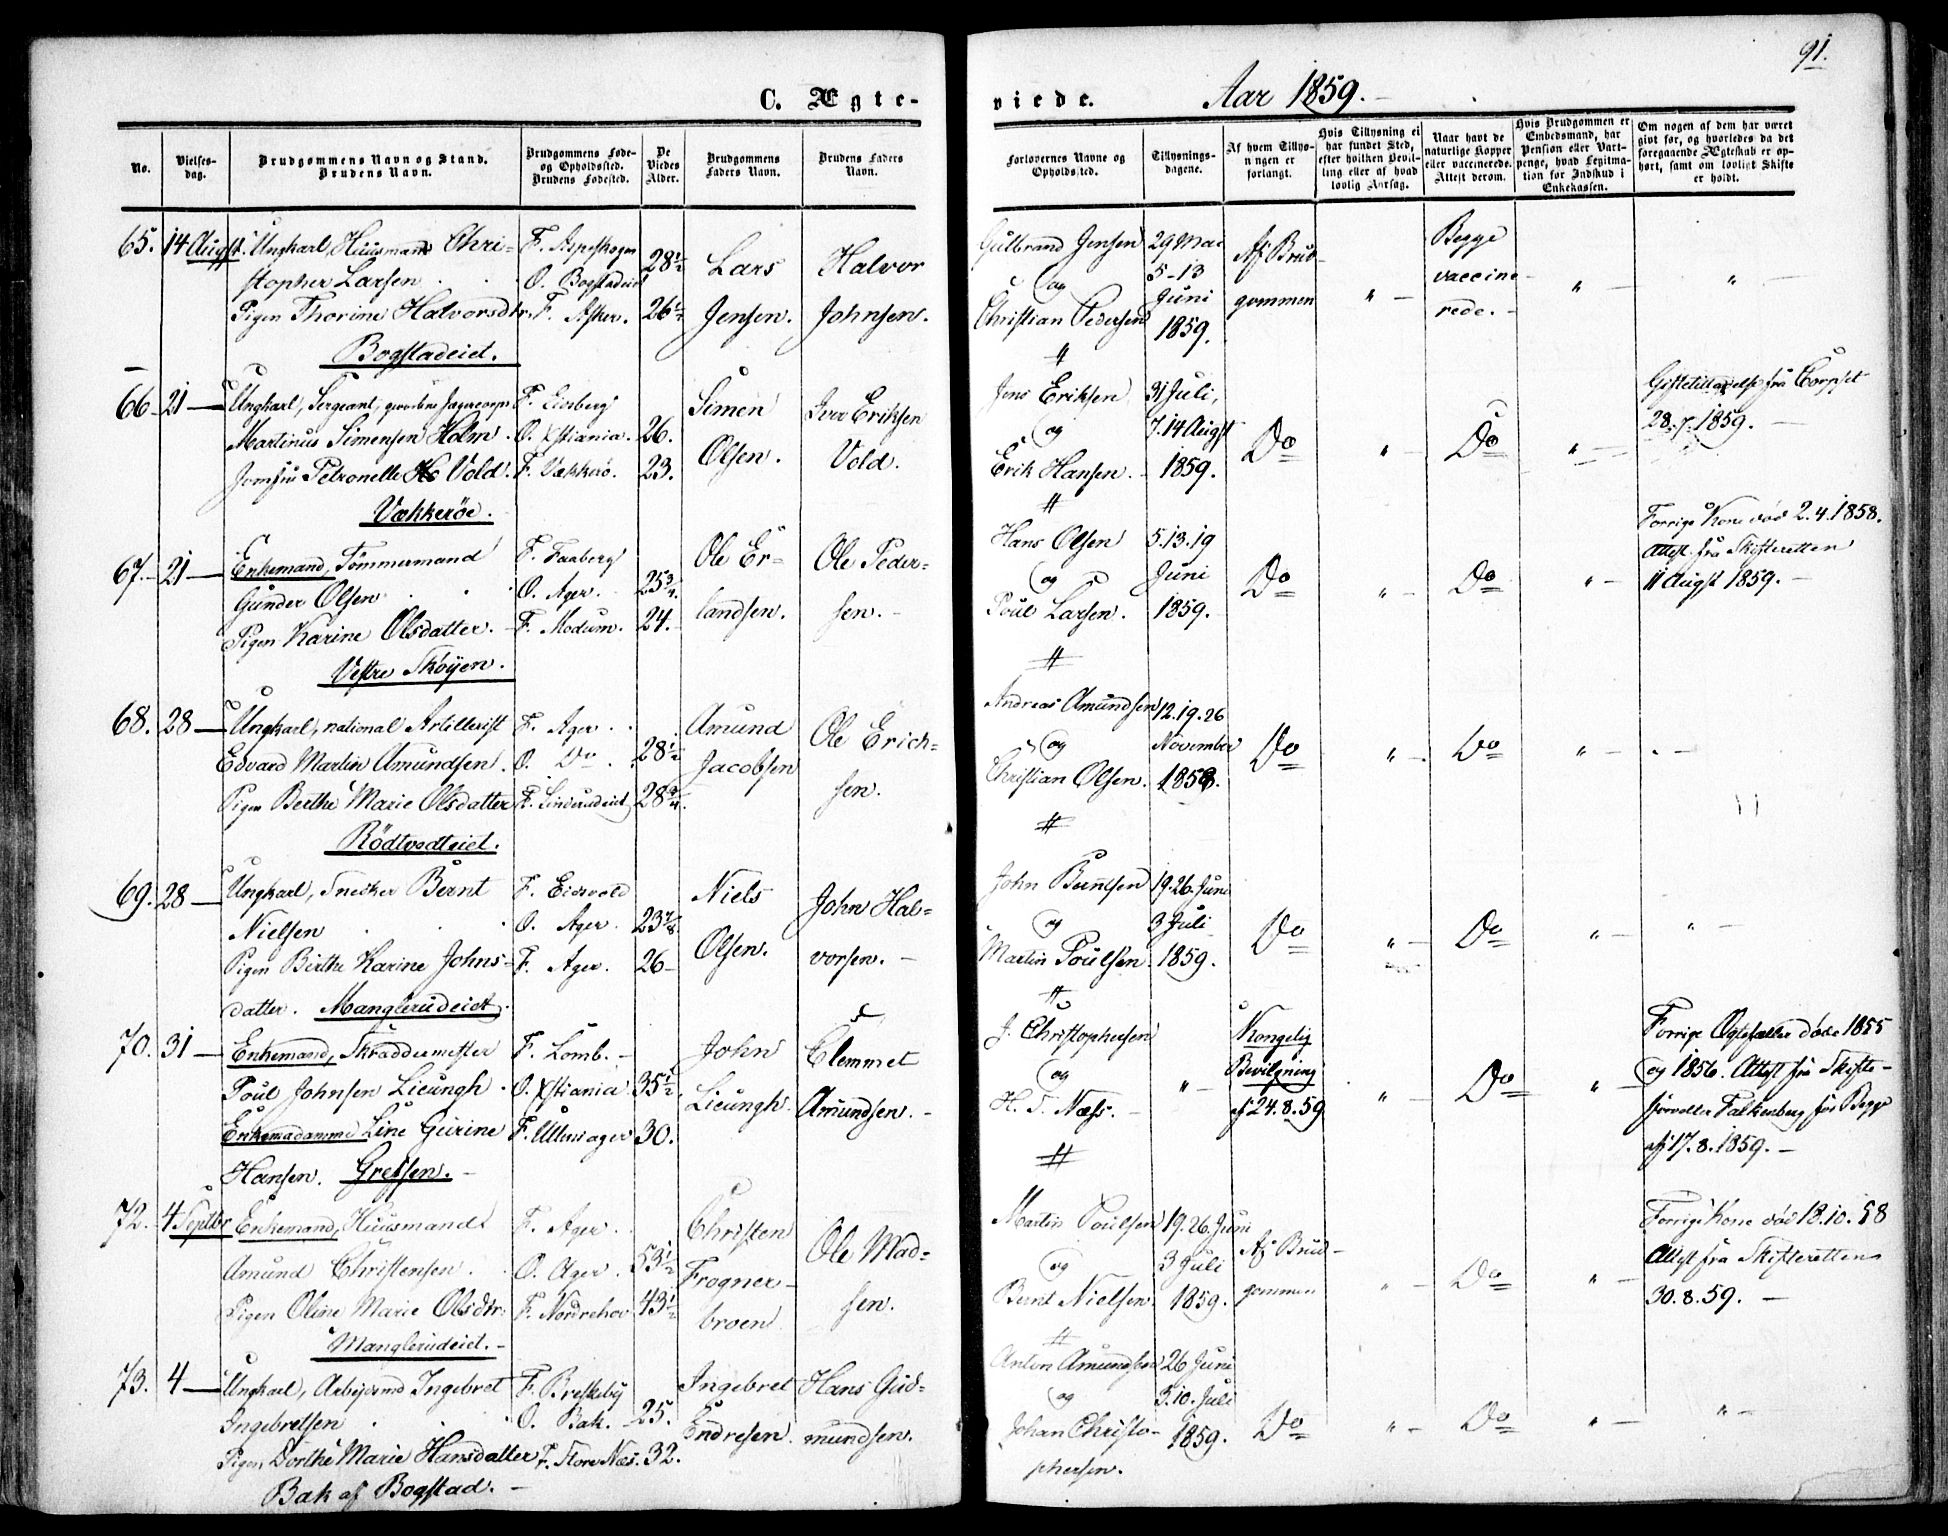 91.
C. Ægte-
viede.
Aar 1859.
No.
Vielses-
dag.
Brudgommens Navn og Stand.
Brudens Navn.
Brudgommens Føde-
og Opholdssted.
Brudens Fødested.
De
Viedes
Alder.
Brudgommens
Faders Navn.
Brudens Faders
Navn.
Forlovernes Navne og
Opholdssted.
Tillysnings-
dagene.
Af hvem Tillys-
ningen er
forlangt.
Hvis Tillysning ei
har fundet Sted,
efter hvilken Bevil-
ling eller af hvad
lovlig Aarsag.
Naar havt de
naturlige Kopper
eller vaccinerede.
Attest derom.
Hvis Brudgommen er
Embedsmand, har
Pension eller Vart-
penge, hvad Legitima-
tion for Indskud i
Enkekassen.
Om nogen af dem har været
gift før, og hvorledes da det
foregaaende Ægteskab er op-
hørt, samt om lovligt Skifte
er holdt.
65. 14 Augst. Ungkarl Huusmand Chri-
stopher Larsen
Pigen Thorine Halvorsdtr.
Bogstadeiet.
F. Aspeskogen
O. Bogstadeiet
F. Asker.
28½
26½
Lars
Jensen.
Halvor
Johnsen.
Gulbrand Jensen
og
Christian Pedersen
29 Mai
5-13
Juni
1859.
Af Brud-
gommen
Begge
vaccine-
rede.
66 21 Ungkarl, Sergeant, gevorbne Jægercorps
Martinus Simensen Holm.
Jomfru Petronelle Vold.
Vækkerøe.
F. Eidsberg
O. Xstiania.
F. Vækkerö.
26.
23.
Simen
Olsen.
Iver Eriksen
Vold.
Jens Eriksen
og
Erik Hansen.
31 Juli,
7.14 Augst
1859.
Do
Do
Giftetilladelse fra Corpset
28.7.1859.
67. 21 Enkemand, Tømmermand
Gunder Olsen
Pigen Karine Olsdatter.
Vestre Skøyen.
F. Faaberg
O. Ager.
F. Modum.
25¾.
24.
Ole Er-
landsen.
Ole Peder-
sen.
Hans Olsen
og
Poul Larsen.
5.13.19
Juni
1859.
Do
Do
Forrige Kone død 2.4.1858.
Attest fra Skifteretten
11 Augst 1859.
68. 28 Ungkarl, national Artillerist
Edvard Martin Amundsen.
Pigen Berthe Marie Olsdatter
Rödtvedteiet.
F. Ager
O. Do
F. Linderudeiet
28½
28¾.
Amund
Jacobsen
Ole Erich-
sen.
Andreas Amundsen
og
Christian Olsen.
12.19.26
November
1858.
Do
Do
69. 28 Ungkarl, Snedker Bernt
Nielsen
Pigen Birthe Karine Johns-
datter. Manglerudeiet.
F. Eidsvold
O. Ager
F. Ager.
23⅞
26
Niels
Olsen.
John Hal-
vorsen.
John Berntsen
og
Martin Poulsen
19.26. Juni
3 Juli
1859.
Do
Do
70. 31 Enkemand, Skræddermester
Poul Johnsen Lieungh
Enkemadamme Line Gurine
Hansen. Grefsen.
F. Lomb.
O. Xstiania
F. Ullensager
35½
30.
John
Lieungh.
Clemmet
Amundsen.
J. Christophersen
og
H. T. Næss.
Kongelig
Bevilgning
af 24.8.59
Do
Forrige Ægtefæller døde 1855
og 1856. Attest fra Skifte-
forvalter Falkenberg for Begge
af 17.8.1859.
72. 4 Septbr Enkemand, Huusmand
Amund Christensen
Pigen Oline Marie Olsdtr.
Manglerudeiet.
F. Ager.
O. Ager
F. Norderhov
53½
43½
Christen
Frogner-
broen
Ole Mad-
sen.
Martin Poulsen
og
Bernt Nielsen
19.26. Juni
3 Juli
1859.
Af Brud-
gommen
Do
Forrige Kone død 18.10.58
Attest fra Skifteretten
30.8.59.
73. 4 Ungkarl, Arbeidsmd Ingebret
Ingebretsen
Pigen Dorthe Marie Hansdatter
Bak af Bogstad.
F. Breskeby
O. Bak.
F. Store Næs.
25.
32.
Ingebret
Endresen.
Hans Gud-
mundsen.
Anton Amundsen
og
Johan Christo-
phersen.
26 Juni
3.10. Juli
1859.
Do
Do